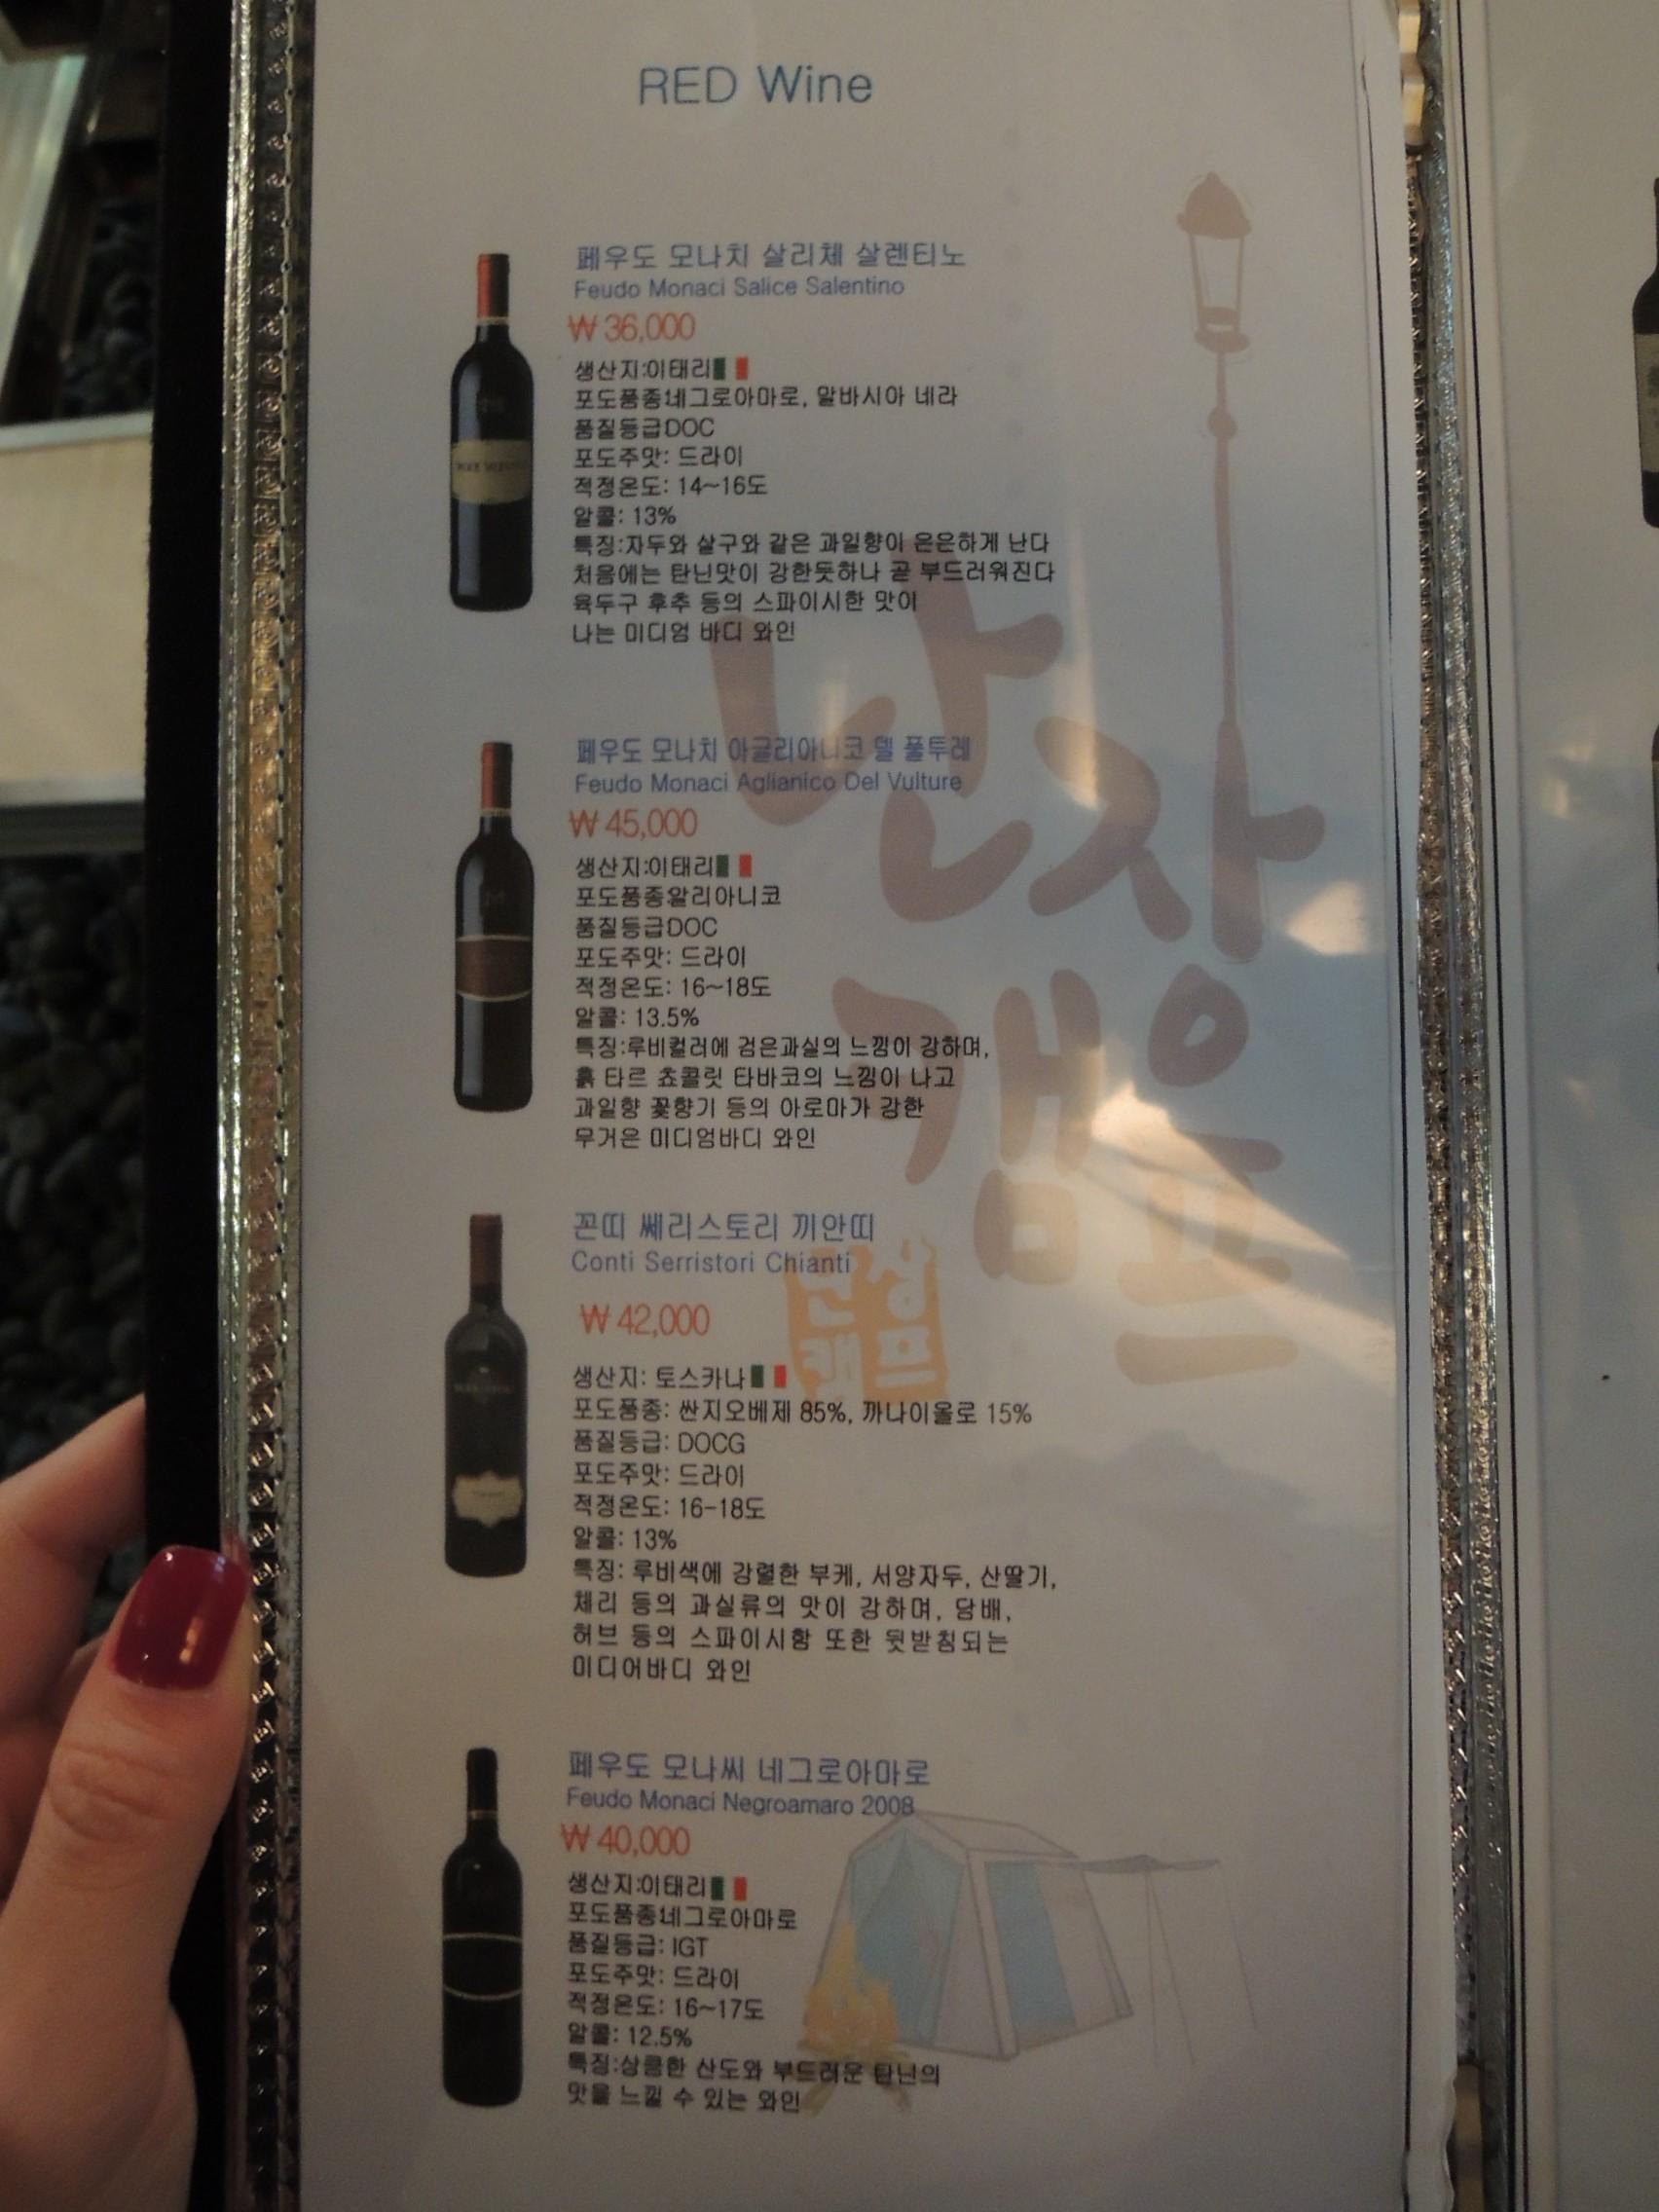 RED Wine
페우도 모나치 살리체 살렌티노
Feudo Monaci Salice Salentino
₩ 36,000
생산지:이태리
포도품종:네그로아마로, 말바시아 네라
품질등급DOC
포도주맛: 드라이
적정온도: 14~16도
알콜: 13%
특징:자두와 살구와 같은 과일향이 은은하게 난다
처음에는 탄닌맛이 강한듯하나 곧 부드러워진다
육두구 후추 등의 스파이시한 맛이
나는 미디엄 바디 와인
페우도 모나치 아글리아니코 델 풀투레
Feudo Monaci Aglianico Del Vulture
₩ 45,000
생산지:이태리
포도품종:알리아니코
품질등급DOC
포도주맛: 드라이
적정온도: 16~18도
알콜: 13.5%
특징:루비컬러에 검은과실의 느낌이 강하며,
흙 타르 쵸콜릿 타바코의 느낌이 나고
과일향 꽃향기 등의 아로마가 강한
무거은 미디엄바디 와인
꼰띠 쎄리스토리 끼안띠
Conti Serristori Chianti
₩ 42,000
생산지: 토스카나
포도품종: 싼지오베제 85%, 까나이올로 15%
품질등급: DOCG
포도주맛: 드라이
적정온도: 16-18도
알콜: 13%
특징: 루비색에 강렬한 부케, 서양자두, 산딸기,
체리 등의 과실류의 맛이 강하며, 담배,
허브 등의 스파이시함 또한 뒷받침되는
미디어바디 와인
페우도 모나씨 네그로아마로
Feudo Monaci Negroamaro 2008
₩ 40,000
생산지:이태리
포도품종:네그로아마로
품질등급: IGT
포도주맛: 드라이
적정온도: 16~17도
알콜: 12.5%
특징:상큼한 산도와 부드러운 탄닌의
맛을 느낄 수 있는 와인
낭자
캠프